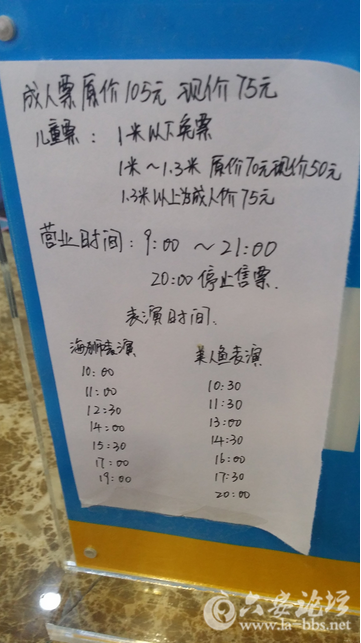 成人票 原价105元 现价75元
儿童票：1米以下免票
1米～1.3米 原价70元现价50元
1.3米以上为成人价75元
营业时间：9:00 ～21:00
20:00 停止售票.
表演时间、
海狮表演 美人鱼表演
10:00 10:30
11:00 11:30
12:30 13:00
14:00 14:30
15:30 16:00
17:00 17:30
19:00 20:00
六安论坛
www.la-bbs.net